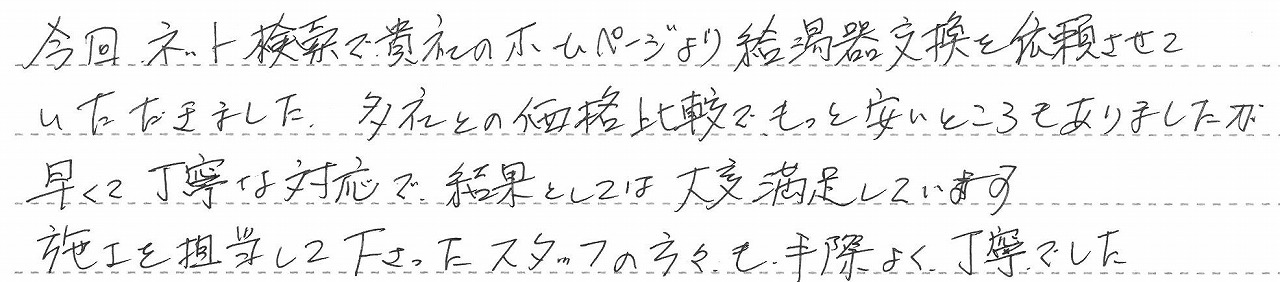 今回 ネット検索で貴社のホームページより給湯器交換を依頼させて
いただきました。 多社との価格比較で、もっと安いところもありましたが
早くて丁寧な対応で、結果としては大変満足しています
施工を担当して下さったスタッフの方々も、手際よく、丁寧でした